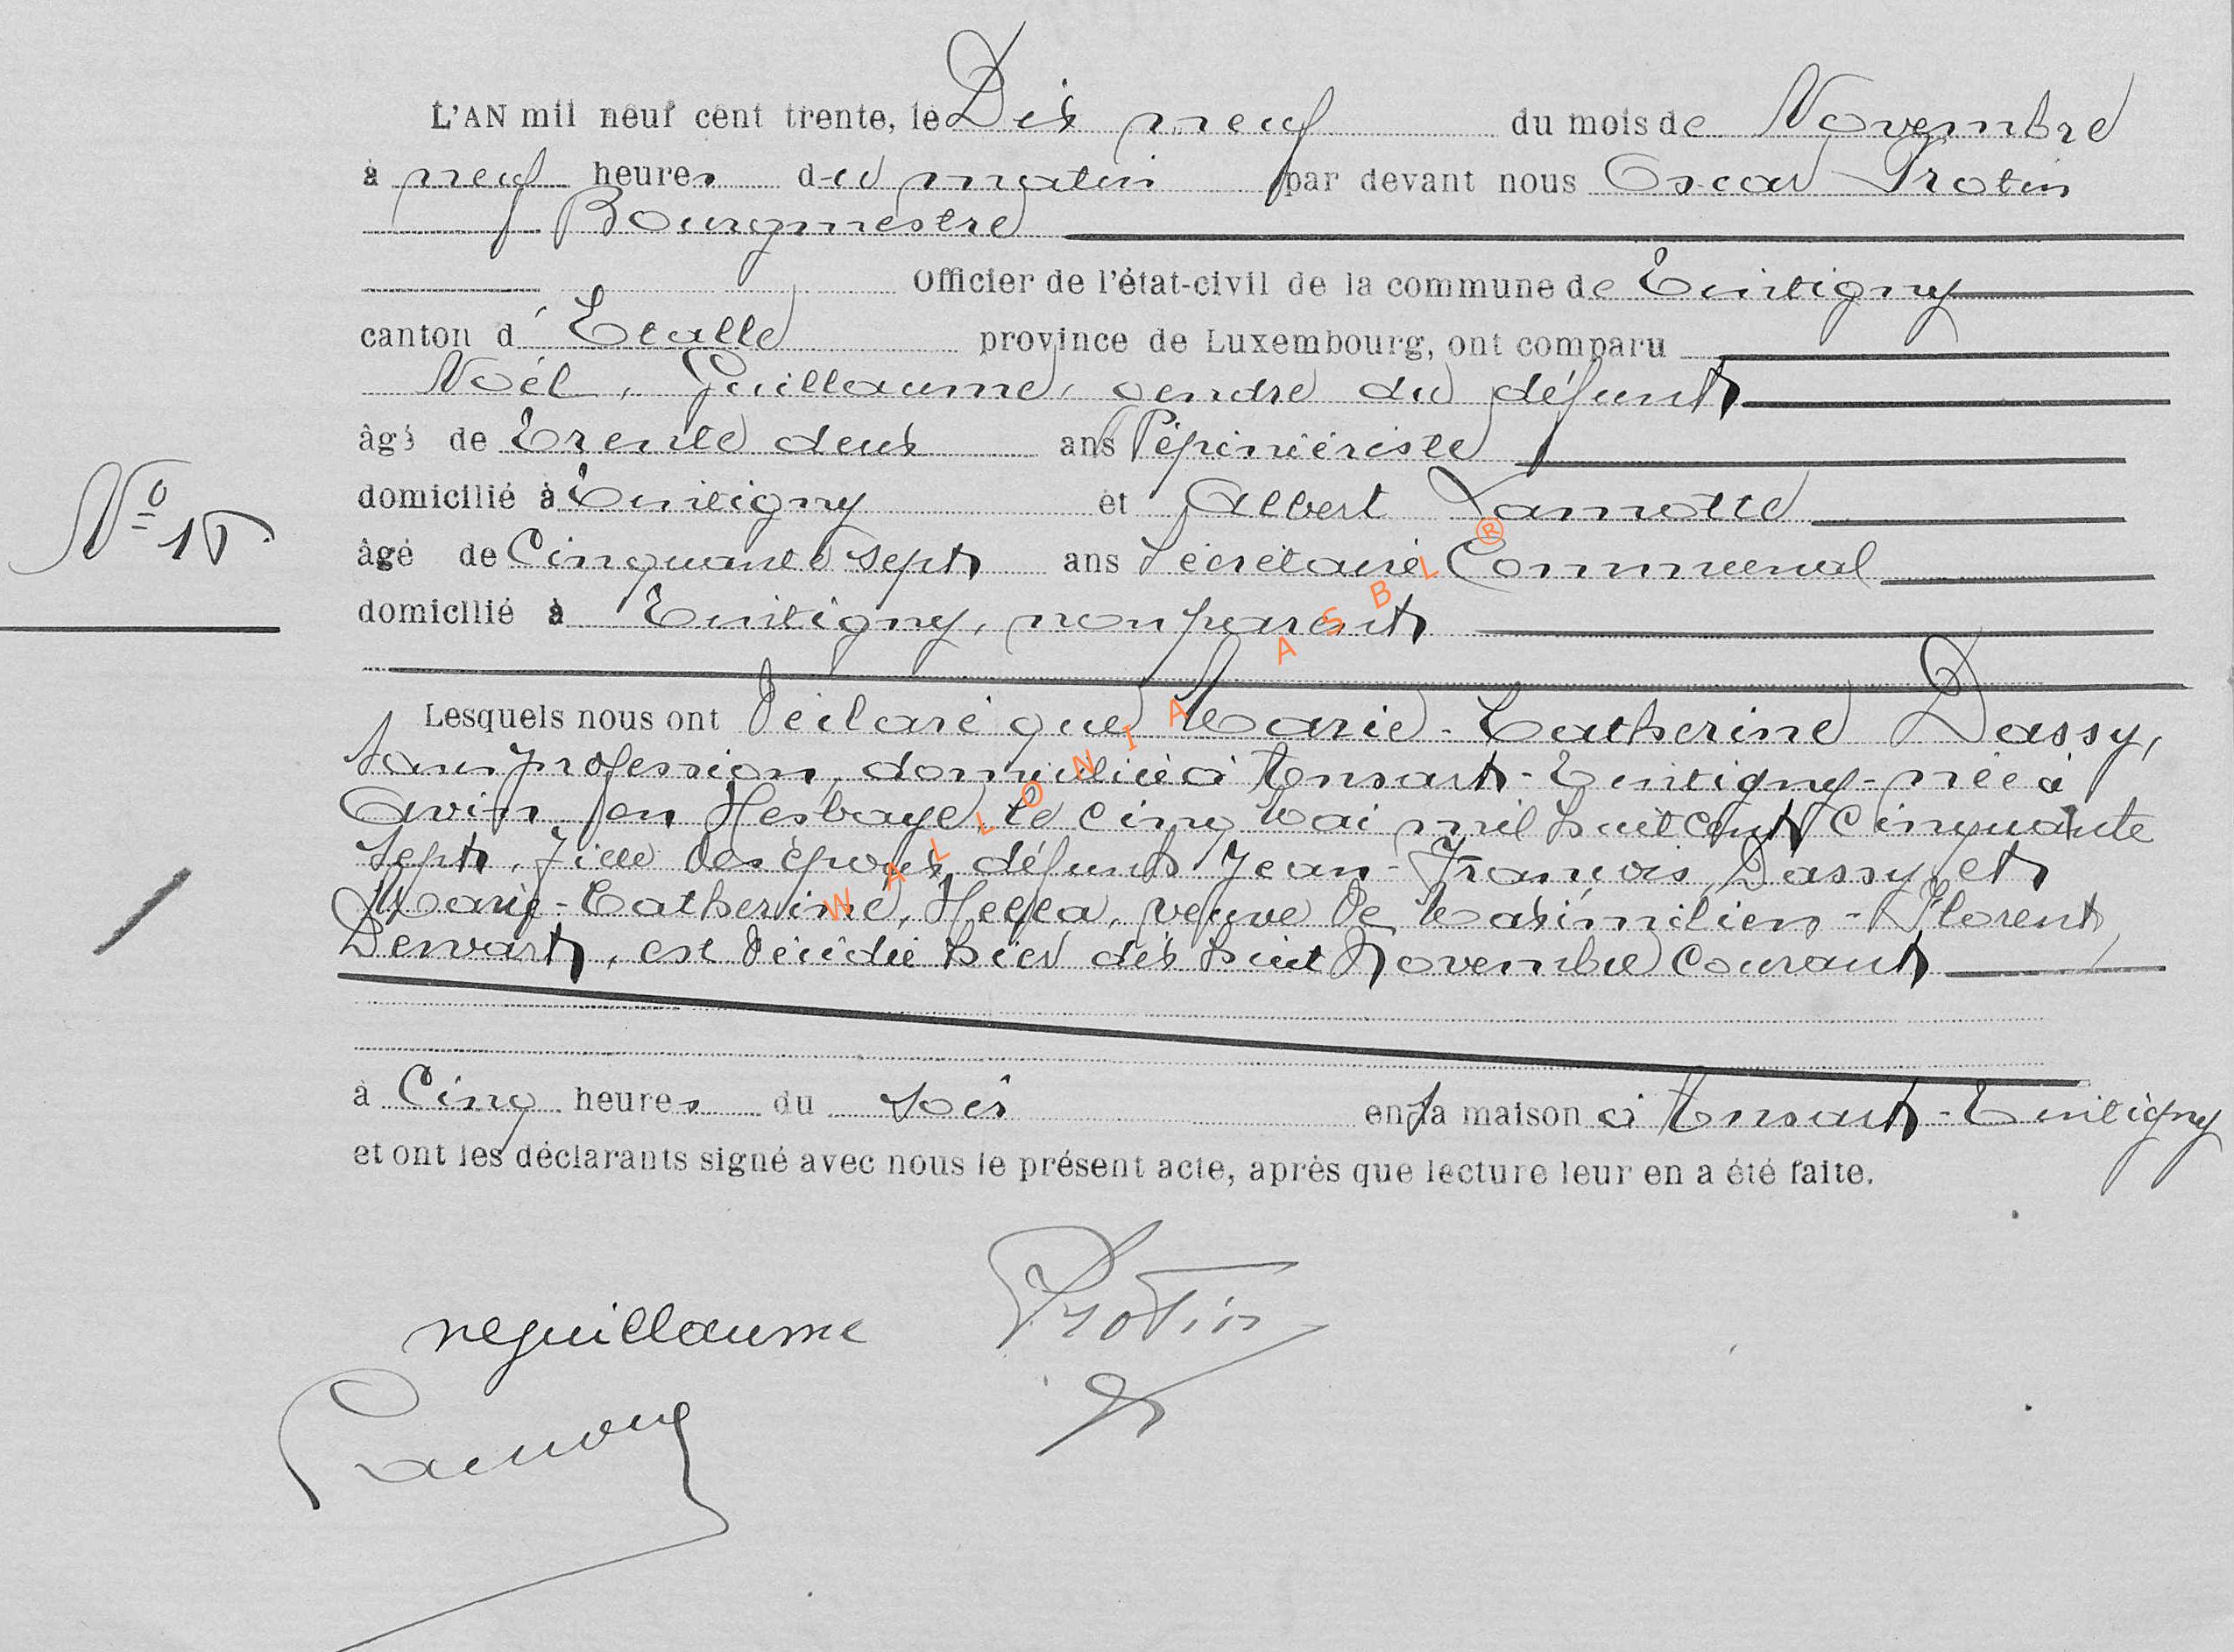 L'AN mil neuf cent trente, le Dix neuf du mois de Novembre
à neuf heures du matin par devant nous Oscar Protin
Bourgmestre
Officier de l'état-civil de la commune de Tintigny
canton d'Etalle province de Luxembourg, ont comparu
Noël, Guillaume, gendre du défunt
âgé de Trente deux ans Pépinièriste
domicilié à Tintigny et Albert Lamotte
âgé de Cinquante sept ans Sécrétaire Communal
domicilié à Tintigny, non parent
Nº 15
Lesquels nous ont déclaré que Marie-Catherine Dassy,
sans profession, domiciliée à Ansart-Tintigny-née à
Avin en Hesbaye, le cinq Mai mil huit cent cinquante
sept, fille des époux défunts Jean-François Dassy et
Marie-Catherine, veuve de Maximilien-Florent,
est décédée hier dix huit Novembre courant
à Cinq heures du soir en sa maison à Ansart-Tintigny
et ont les déclarants signé avec nous le présent acte, après que lecture leur en a été faite.
neguillaume Protin
WALLONIA ASBL ®